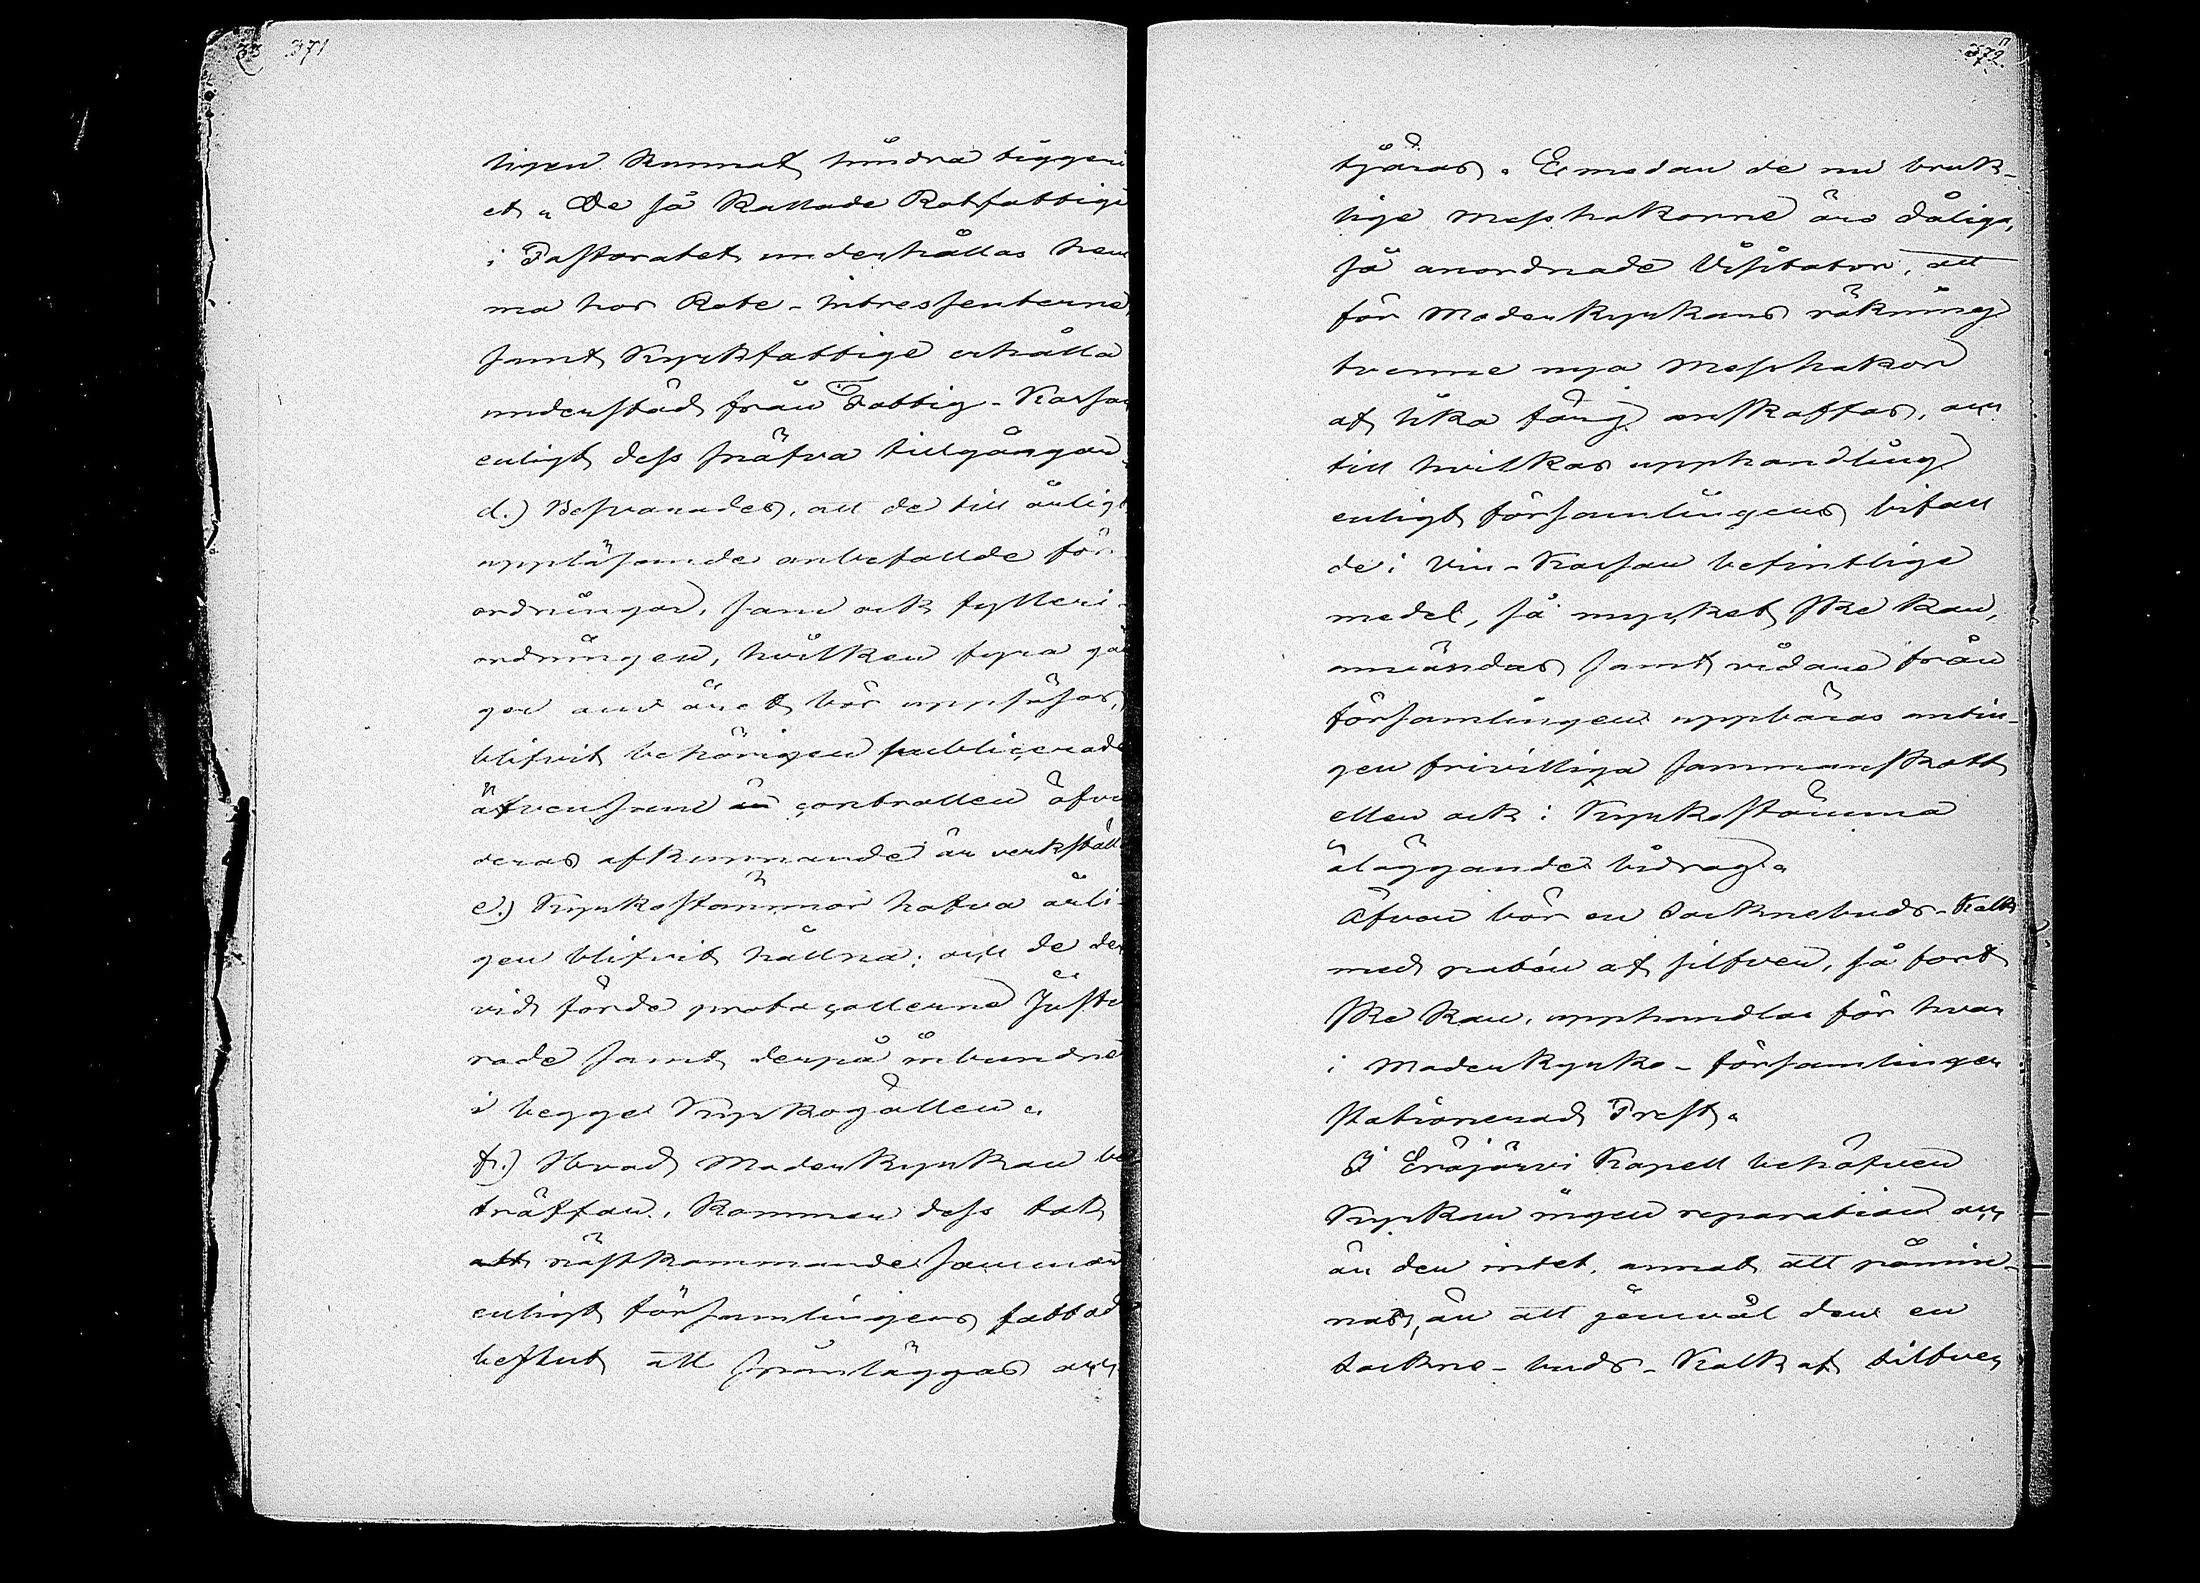 33 371
ligen kunnat hindra tiggeri-
et. De så kallade Rotfattige
i Pastoratet underhållas hem
ma hos Rote-intressenterne,
samt Kyrkfattige erhålla
understöd från Fattig-Kassan
enligt dess knappa tillgångar.
d.) Besvarades, att de till årligt
uppläsande anbefallde för-
ordningar, som ock fylleri-
ordningen, hvilken fyra gån
ger om året bör uppläsas,
blifvit behörigen publicerade
äfvensom controllen öfver
deras afkunnande är verkställd
e.) Kyrkostämmor hafva årli-
gen blifvit hållna; och de der
vid förde protocollerne juste
rade samt derpå inbundne
i begge Kyrkogällen.
f.) Hvad Moderkyrkan be
träffar, kommer dess tak
att nästkommande sommar
enligt församlingens fattade
beslut att spånläggas och
372
tjäras. Emedan de nu bruk-
lige messhakorne äro dåliga,
så anordnade Visitator, att
för Moderkyrkans räkning
tvenne nya Messhakor
af lika färg anskaffas, och
till hvilkas upphandling
enligt församlingens bifall
de i Vin-Kassan befintlige
medel, så mycket ske kan,
användas samt vidare från
församlingen uppbäras antin-
gen frivilliga sammanskott
eller ock i Kyrkostämma
åläggande bidrag.
Äfven bör en Socknebuds-Kalk
med patén af silfver, så fort
ske kan, upphandlas för hvar
i Moderkyrko-församlingen
stationerad Prest.
I Eräjärvi Kapell behöfver
Kyrkan ingen reparation och
är der intet annat att påmin-
nas, än att jemväl der en
sockne-buds-Kalk af silfver